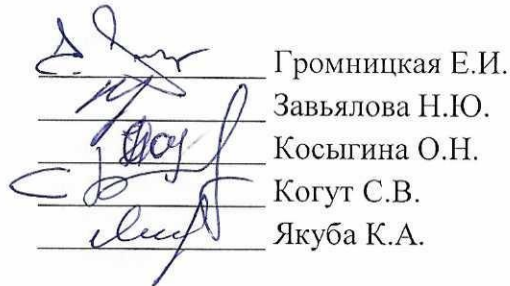 Громницкая Е.И.
Завьялова Н.Ю.
Косыгина О.Н.
Когут С.В.
Якуба К.А.